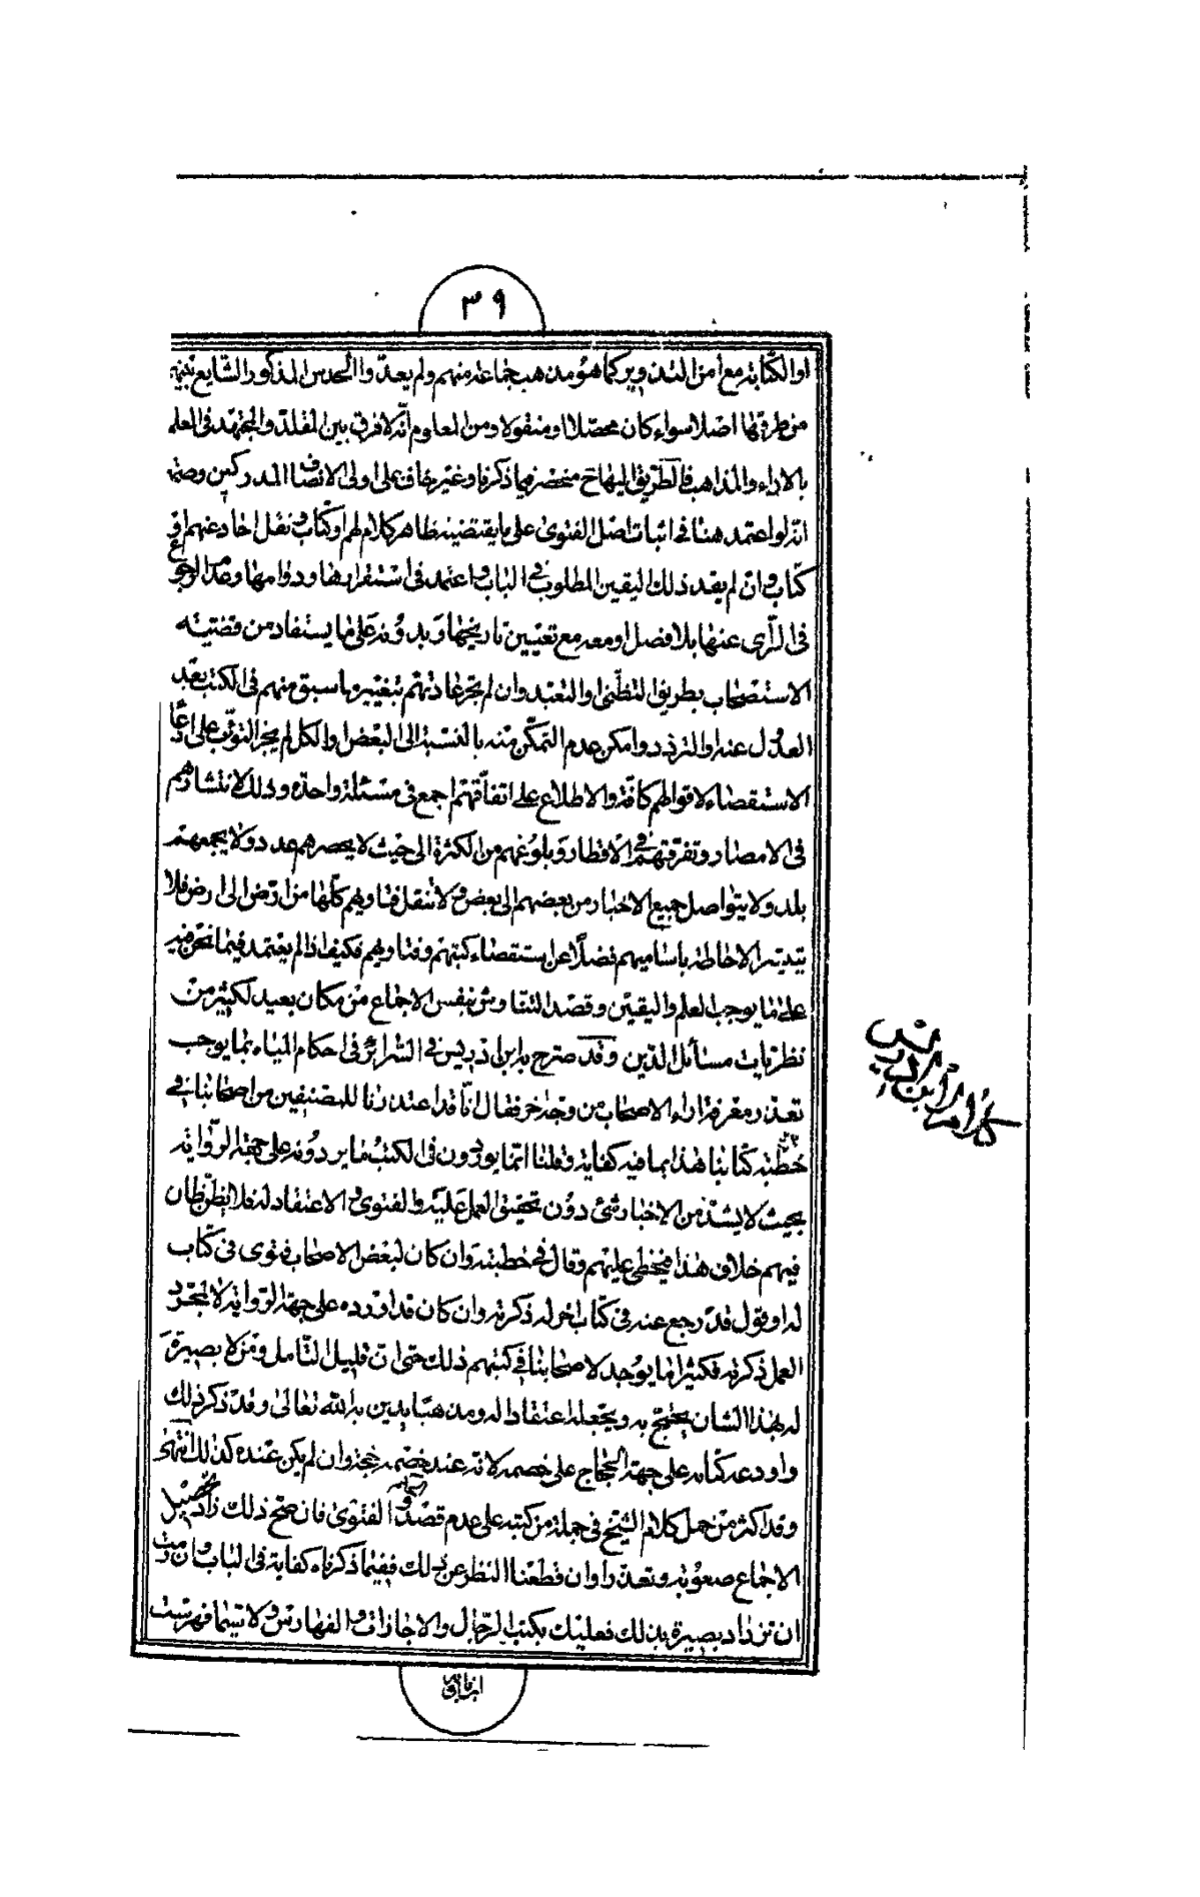 ٣٩
او الكتابة مع امن التدوير كما هو مذهب جماعة منهم ولم يعدّوا الحدس المذكور الشايع بينهم
من طرقها اصلا سواء كان محصلا او منقولا ومن المعلوم انّه لا فرق بين المقلد والمجتهد فى العلم
بالاراء والمذاهب فالطريق اليها ح منحصر فيما ذكرنا وغير خاف على اولى الانصاف المدركين
انّه لو اعتمد هنا فى اثبات اصل الفتوى على ما يقتضيه ظاهر كلام لهم او كتاب ونقل احاد عنهم او
كتاب وان لم يفد ذلك اليقين المطلوب فى الباب واعتمد فى استقرارها ودوامها وعدم الرجوع
فى الرّاى عنها بلا فصل او معه مع تعيين تاريخها وبدونه على ما يستفاد من قضيّة
الاستصحاب بطريق التظنّى او التعبّد وان لم تجر عادتهم بتغيير ما سبق منهم فى الكتب بعد
العدول عنه او التردّد وامكن عدم التمكّن منه بالنسبة الى البعض او الكل لم يجز التوثّب على ادّعاء
الاستقصاء لاقوالهم كافة والاطلاع على اتفاقهم اجمع فى مسئلة واحدة وذلك لانتشارهم
فى الامصار وتفرّقهم فى الاقطار وبلوغهم من الكثرة الى حيث لا يحصرهم عدد ولا يجمعهم
بلد ولا يتواصل جميع الاخبار من بعضهم الى بعض ولا تنقل فتاويهم كلّها من ارض الى ارض فلا
يتيسّر الاحاطة باساميهم فضلا عن استقصاء كتبهم وفتاويهم فكيف اذا لم يعتمد فيما نحن فيه
على ما يوجب العلم واليقين وقصد التناوش بنفس الاجماع من مكان بعيد لكثير من
نظريات مسائل الدّين وقد صرّح ابن ادريس فى السّرائر فى احكام المياه بما يوجب
تعذّر معرفة اراء الاصحاب من وجه اخر فقال انّا قد اعتذرنا للمصنفين من اصحابنا فى
خطبة كتابنا هذا بما فيه كفاية وقلنا انّما يوردون فى الكتب ما يردونه على جهة الرّواية
بحيث لا يشذ من الاخبار شئ دون تحقيق العمل عليه والفتوى والاعتقاد له فلا يظن ظان
فيهم خلاف هذا فيخطئ عليهم وقال فى خطبته وان كان لبعض الاصحاب فتوى فى كتاب
له او قول قد رجع عنه فى كتاب اخر له ذكرته وان كان قد اورده على جهة الرّواية لا بمجرّد
العمل ذكرته فكثيرا ما يوجد لاصحابنا فى كتبهم ذلك حتى انّ قليل التّامل ومن لا بصيرة
له بهذا الشان يحتج به ويجعله اعتقادا له ومذهبا يدين به الله تعالى وقد ذكر ذلك
واودعه كتابه على جهة الحجاج على خصمه لانه عند خصمه حجة وان لم يكن عنده كذلك انتهى
وقد اكثر من حمل كلام الشيخ فى جملة من كتبه على عدم قصده الفتوى فان صح ذلك زاد تحصيل
الاجماع صعوبة وتعذّرا وان قطعنا النظر عن ذلك ففيما ذكرناه كفاية فى الباب وان شئت
ان تزداد بصيرة بذلك فعليك بكتب الرّجال والاجازات والفهارس ولا سيّما فهرست
كلام ابن ادريس